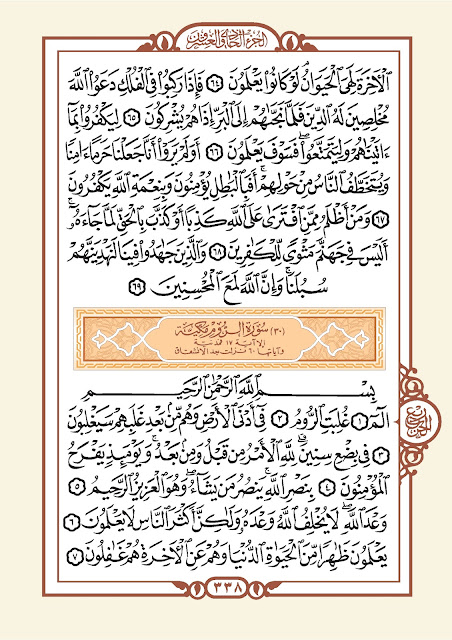 الجزء الحادي والعشرون
ٱلْأَخِرَةَ لَهِىَ ٱلْحَيَوَانُ لَوْ كَانُوا۟ يَعْلَمُونَ ٦٤ فَإِذَا رَكِبُوا۟ فِى ٱلْفُلْكِ دَعَوُا۟ ٱللَّهَ
مُخْلِصِينَ لَهُ ٱلدِّينَ فَلَمَّا نَجَّىٰهُمْ إِلَى ٱلْبَرِّ إِذَا هُمْ يُشْرِكُونَ ٦٥ لِيَكْفُرُوا۟ بِمَآ
ءَاتَيْنَٰهُمْ وَلِيَتَمَتَّعُوا۟ فَسَوْفَ يَعْلَمُونَ ٦٦ أَوَلَمْ يَرَوْا۟ أَنَّا جَعَلْنَا حَرَمًا ءَامِنًا
وَيُتَخَطَّفُ ٱلنَّاسُ مِنْ حَوْلِهِمْ أَفَبِٱلْبَٰطِلِ يُؤْمِنُونَ وَبِنِعْمَةِ ٱللَّهِ يَكْفُرُونَ
٦٧ وَمَنْ أَظْلَمُ مِمَّنِ ٱفْتَرَىٰ عَلَى ٱللَّهِ كَذِبًا أَوْ كَذَّبَ بِٱلْحَقِّ لَمَّا جَآءَهُۥٓ
أَلَيْسَ فِى جَهَنَّمَ مَثْوًى لِّلْكَٰفِرِينَ ٦٨ وَٱلَّذِينَ جَٰهَدُوا۟ فِينَا لَنَهْدِيَنَّهُمْ
سُبُلَنَا وَإِنَّ ٱللَّهَ لَمَعَ ٱلْمُحْسِنِينَ ٦٩
(٣٠) سُورَةُ ٱلرُّومِ مَكِّيَّة
إلا آية ١٧ فمدنية
وآياتها ٦٠ نزلت بعد الانشقاق
بِسْمِ ٱللَّهِ ٱلرَّحْمَٰنِ ٱلرَّحِيمِ
الٓمٓ ١ غُلِبَتِ ٱلرُّومُ ٢ فِىٓ أَدْنَى ٱلْأَرْضِ وَهُم مِّنۢ بَعْدِ غَلَبِهِمْ سَيَغْلِبُونَ
٣ فِى بِضْعِ سِنِينَ لِلَّهِ ٱلْأَمْرُ مِن قَبْلُ وَمِنۢ بَعْدُ وَيَوْمَئِذٍ يَفْرَحُ
ٱلْمُؤْمِنُونَ ٤ بِنَصْرِ ٱللَّهِ يَنصُرُ مَن يَشَآءُ وَهُوَ ٱلْعَزِيزُ ٱلرَّحِيمُ ٥
وَعْدَ ٱللَّهِ لَا يُخْلِفُ ٱللَّهُ وَعْدَهُۥ وَلَٰكِنَّ أَكْثَرَ ٱلنَّاسِ لَا يَعْلَمُونَ ٦
يَعْلَمُونَ ظَٰهِرًا مِّنَ ٱلْحَيَوٰةِ ٱلدُّنْيَا وَهُمْ عَنِ ٱلْأَخِرَةِ هُمْ غَٰفِلُونَ ٧
٣٣٨